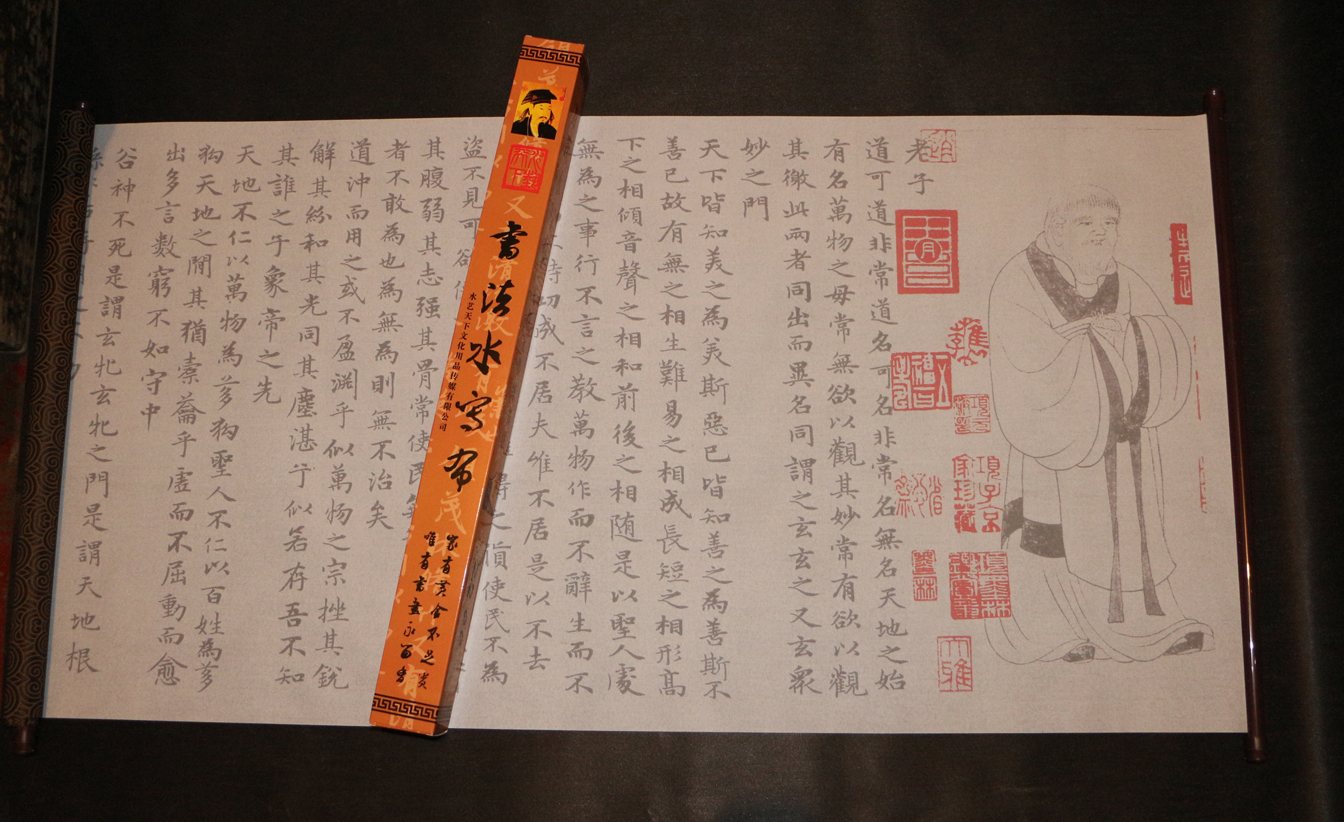 老子
道可道非常道名可名非常名無名天地之始
有名萬物之母常無欲以觀其妙常有欲以觀
其徼此兩者同出而異名同謂之玄玄之又玄衆
妙之門
天下皆知美之為美斯惡已皆知善之為善斯不
善已故有無之相生難易之相成長短之相形高
下之相傾音聲之相和前後之相随是以聖人處
無為之事行不言之教萬物作而不辭生而不
恃功成不居夫惟不居是以不去
得之貨使民不為
盜不見可欲
其腹弱其志强其骨常使民無
者不敢為也為無為則無不治矣
道沖而用之或不盈淵乎似萬物之宗挫其銳
解其紛和其光同其塵湛兮似若存吾不知
其誰之子象帝之先
天地不仁以萬物為芻狗聖人不仁以百姓為芻
狗天地之間其猶橐籥乎虛而不屈動而愈
出多言數窮不如守中
谷神不死是謂玄牝玄牝之門是謂天地根
書法水写布
水艺天下文化用品传媒有限公司
家有黄金不足贵
唯有書畫永留香
項子京
家珍藏